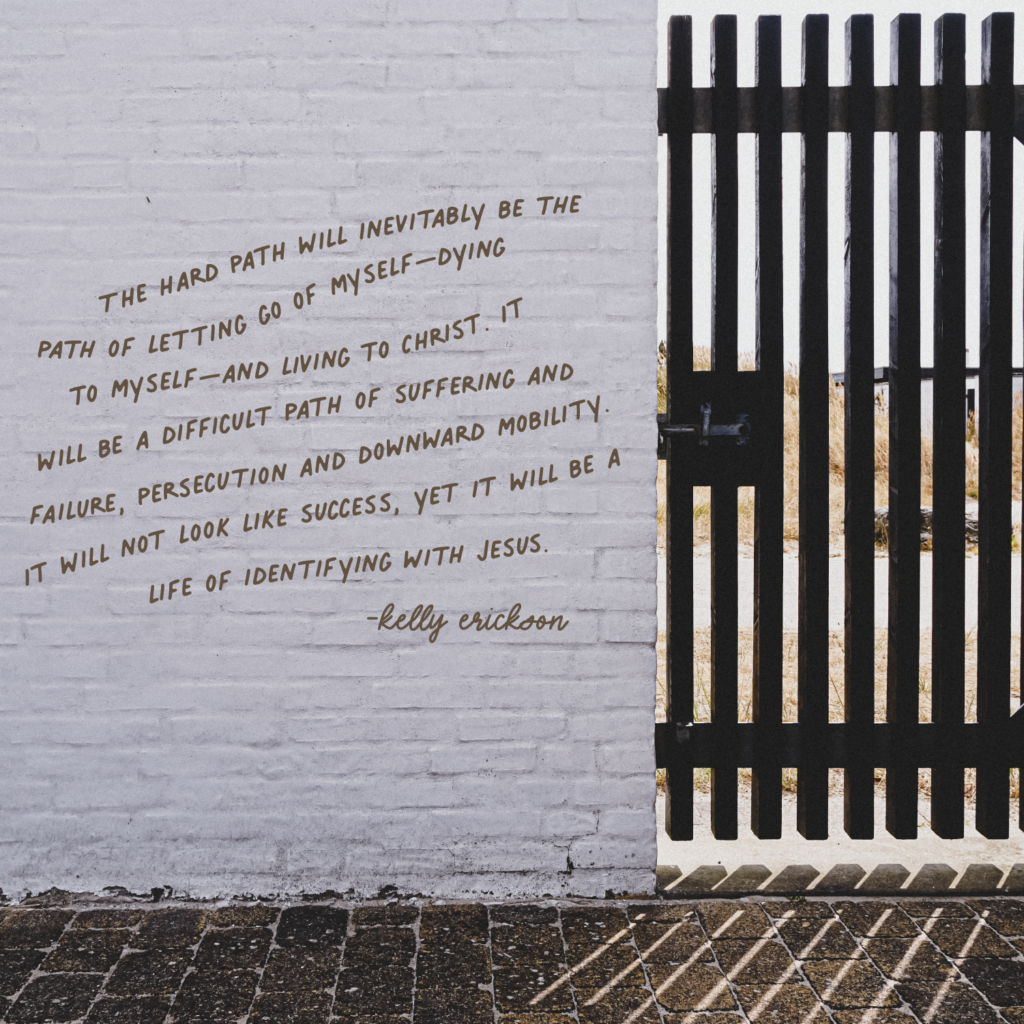 THE HARD PATH WILL INEVITABLY BE THE
PATH OF LETTING GO OF MYSELF—DYING
TO MYSELF—AND LIVING TO CHRIST. IT
WILL BE A DIFFICULT PATH OF SUFFERING AND
FAILURE, PERSECUTION AND DOWNWARD MOBILITY.
IT WILL NOT LOOK LIKE SUCCESS, YET IT WILL BE A
LIFE OF IDENTIFYING WITH JESUS.
-kelly erickson